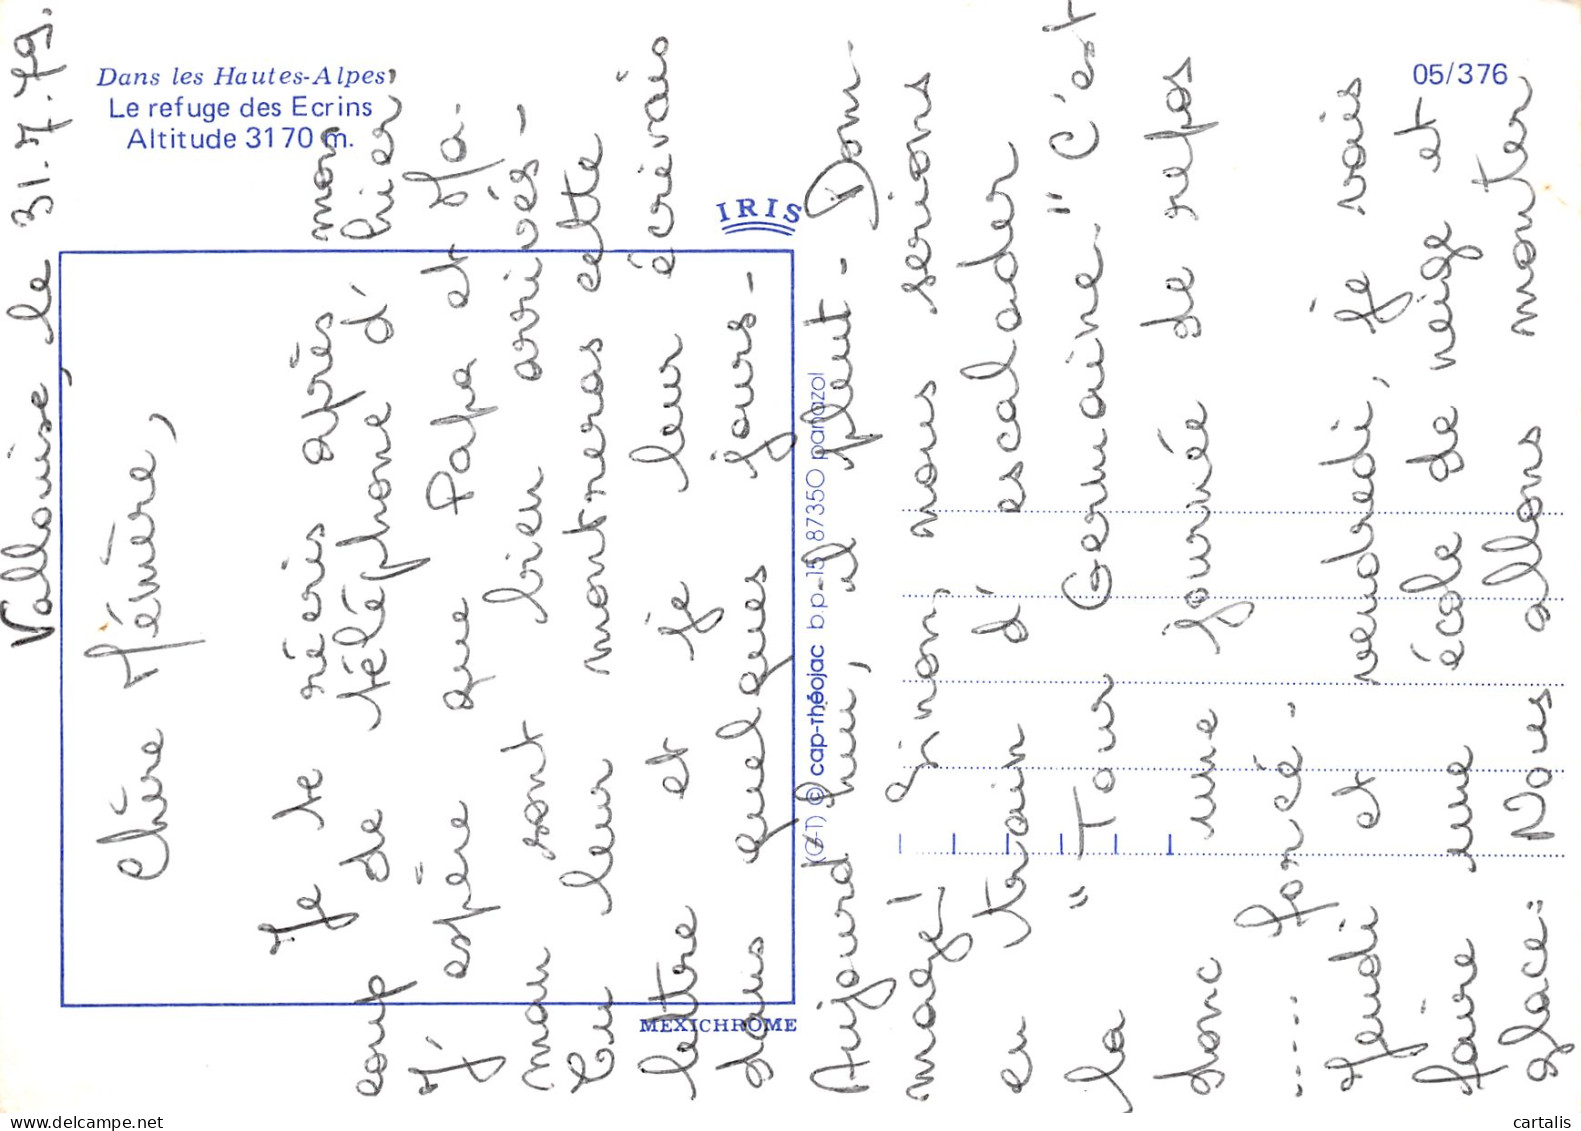 Dans les Hautes-Alpes
Le refuge des Ecrins
Altitude 3170 m.
05/376
IRIS
MEXICHROME
(G-T) © cap-théojac b.p.-15 87350 panazol
Vallouise, le 31.7.79.
Chère Mémère,
Je te réeris après mon
coup de téléphone d'hier,
J'espère que Papa et Ma-
man sont bien arrivés-
Tu leur montreras cette
lettre et je leur écrivais
dans quelques jours-
Aujourd'hui, il pleut - Dom-
mage! Sinon, nous serions
en train d'escalader
la "Tour Germaine." C'est
donc une journée de repos
.... forcé.
Jeudi et vendredi, je vais
faire une école de neige et
glace: Nous allons monter